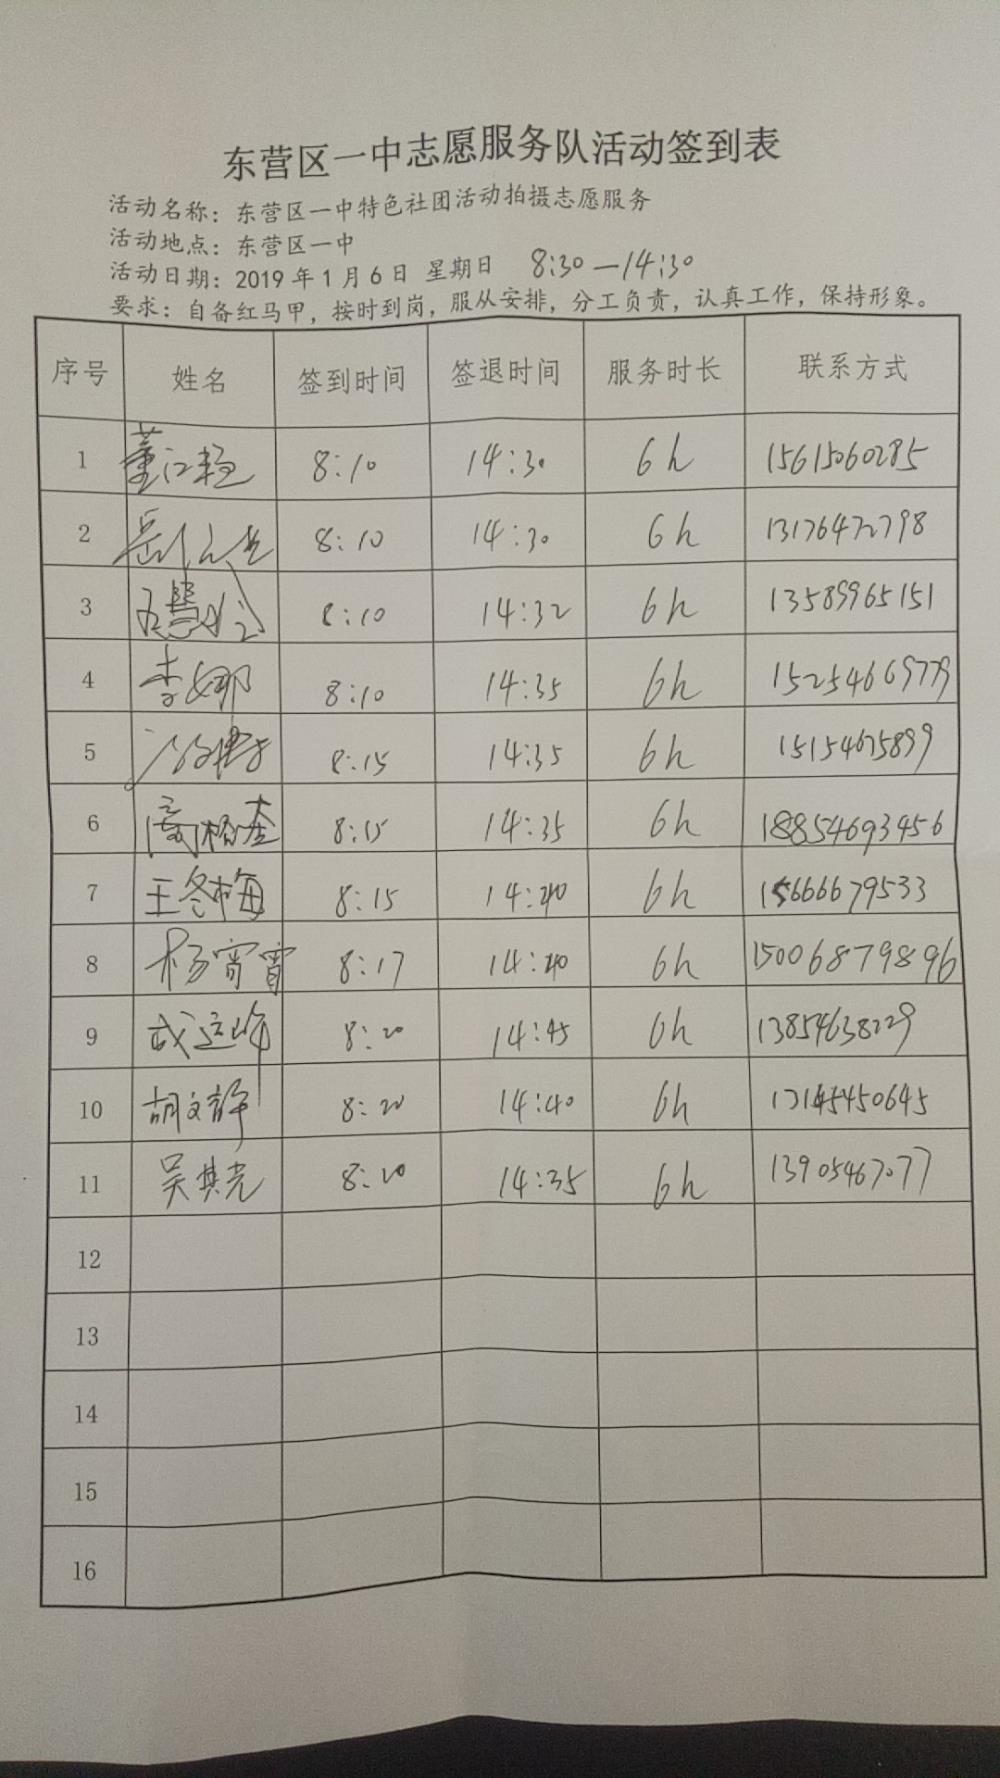 东营区一中志愿服务队活动签到表
活动名称：东营区一中特色社团活动拍摄志愿服务
活动地点：东营区一中
活动日期：2019年1月6日 星期日 8:30—14:30
要求：自备红马甲，按时到岗，服从安排，分工负责，认真工作，保持形象。
序号 姓名 签到时间 签退时间 服务时长 联系方式
1 董江 8:10 14:30 6h 15615060285
2 8:10 14:30 6h 13176472798
3 8:10 14:32 6h 13589965151
4 李娜 8:10 14:35 6h 15254669779
5 8:15 14:35 6h 15154675899
6 8:15 14:35 6h 18854693456
7 王冬梅 8:15 14:40 6h 15666679533
8 杨宵宵 8:17 14:40 6h 15006879896
9 8:20 14:45 6h 13854638229
10 胡文静 8:20 14:40 6h
11 吴其光 8:20 14:35 6h 13905467077
12
13
14
15
16